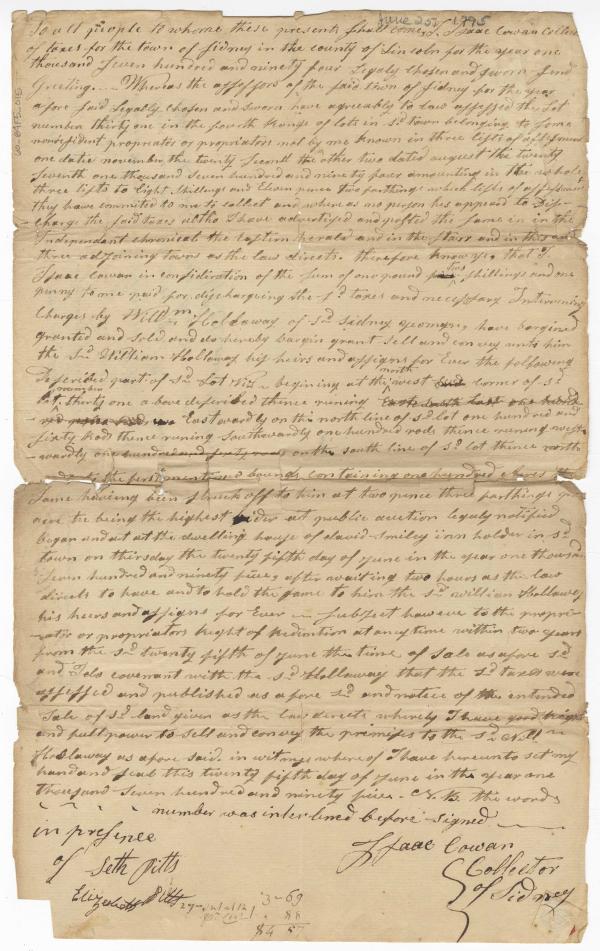 June 25, 1795
To all people to whome these presents shall come, I Isaac Cowan Collect
of taxes for the town of Sidney in the county of Lincoln for the year one
thousand seven hundred and ninety four Legaly Chosen and sworn send
Greeting. . . . Whereas the assessors of the said town of Sidney for the year
afore said Legally Chosen and sworn have agreably to Law assessed the Lot
number thirty one in the fourth Range of lots in sd town belonging to some
nonresident propriator or propriators not by me known in three lists of assessment
one date november the twenty second the other two dated august the twenty
seventh one thousand seven hundred and ninety four amounting in the whole
three lists to Eight shillings and Eleven pence two farthings which lists of assessment
they have commited to me to collect and where as no person has appeared to Dis-
-charge the said taxes altho I have advertised and posted the same in in the
Independant chronical the Eastern herald and in the starr and in this and
three adjoining towns as the law directs. therefore know ye, that I
Isaac Cowan in consideration of the sum of one pound two shillings and one
penny to me paid for discharging the sd taxes and necessary Intervening
Charges by Willm Hollaway of sd Sidney yeomyn, have bargined
granted and sold, and do hereby bargin grant sell and convey unto him
the sd William Hollaway his heirs and assigns for Ever the following
Described part of sd Lot Viz - begining at the north west End corner of sd
lot, number thirty one above described thence runing East south East one hund
Eastwardly on the north line of sd lot one hundred and
sixty Rods thence runing Southwardly one hundred rods thence runing west-
wardly one hundred and sixty rods on the south line of sd lot thence north
wardly to the first mentioned bounds, containing one hundred Acres the
same having been struck off to him at two pence three farthings per
acre he being the highest bider at public auction legaly notified
began and at the dwelling house of david Smiley inn holder in sd
town on thirsday the twenty fifth day of June in the year one thousand
seven hundred and ninety five, after awaiting two hours as the law
directs to have and to hold the same to him the sd William Hollaway
his heirs and assigns for Ever - subject however to the propri-
-ator or propriators Right of Redimtion at any time within two years
from the sd twenty fifth of June the time of sale as afore sd
and I do covenant with the sd Hollaway that the sd taxes were
assessed and published as afore sd and notice of the intended
sale of sd land given as the law directs whereby I have good Right
and full power to sell and convey the premises to the sd Will m
Hollaway as afore said. in witness where of I have hereunto set my
hand and seal this twenty fifth day of June in the year one
thousand seven hundred and ninety five - N.B. the words
number was interlined before signed
in presence
of Seth Pitts
Elizabeth Pitts
Isaac Cowan
Collector
of Sidney
3-69
88
$4 57